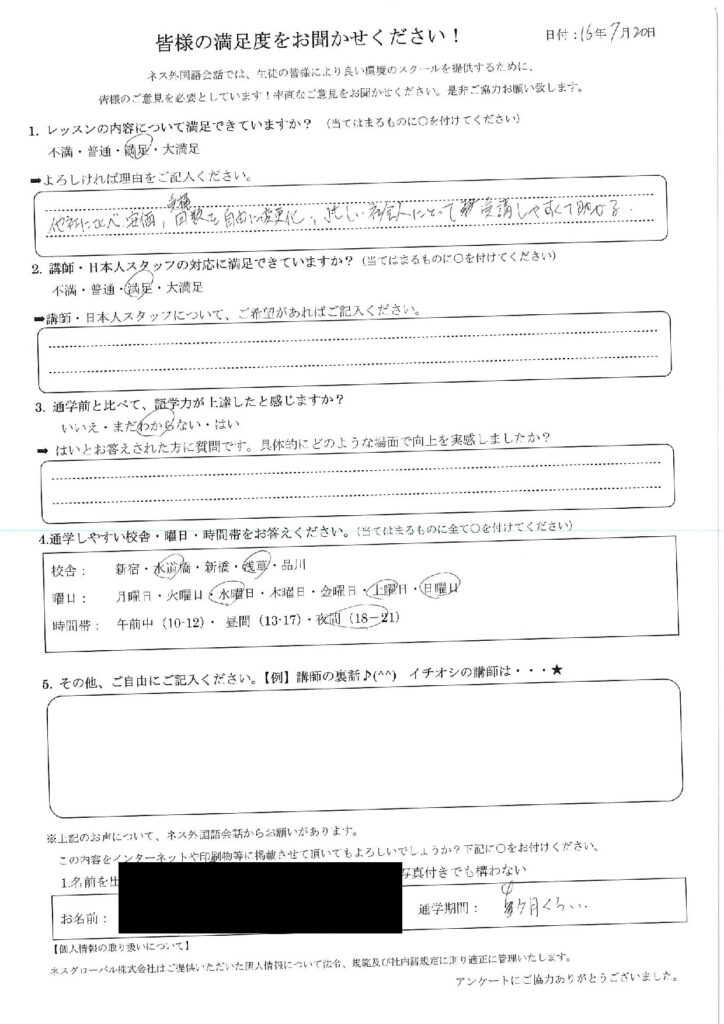 皆様の満足度をお聞かせください！
日付：16年7月20日
ネス外国語会話では、生徒の皆様により良い環境のスクールを提供するために、
皆様のご意見を必要としています！率直なご意見をお聞かせください。是非ご協力お願い致します。
1. レッスンの内容について満足できていますか？ （当てはまるものに○を付けてください）
不満・普通・満足・大満足
➡よろしければ理由をご記入ください。
他社に比べ安価，回数を自由に変更化，忙しい社会人にとって受講しやすくて助かる．
2. 講師・日本人スタッフの対応に満足できていますか？（当てはまるものに○を付けてください）
不満・普通・満足・大満足
➡講師・日本人スタッフについて、ご希望があればご記入ください。
3. 通学前と比べて、語学力が上達したと感じますか？
いいえ・まだわからない・はい
➡ はいとお答えされた方に質問です。具体的にどのような場面で向上を実感しましたか？
4.通学しやすい校舎・曜日・時間帯をお答えください。（当てはまるものに全て○を付けてください）
校舎： 新宿・水道橋・新橋・浅草・品川
曜日： 月曜日・火曜日・水曜日・木曜日・金曜日・土曜日・日曜日
時間帯： 午前中（10-12）・ 昼間（13-17）・夜間（18－21）
5. その他、ご自由にご記入ください。【例】講師の裏話♪(^^) イチオシの講師は・・・★
※上記のお声について、ネス外国語会話からお願いがあります。
この内容をインターネットや印刷物等に掲載させて頂いてもよろしいでしょうか？下記に○をお付けください。
1.名前を 写真付きでも構わない
お名前： 通学期間： 4ヶ月くらい..
【個人情報の取り扱いについて】
ネスグローバル株式会社はご提供いただいた個人情報について法令、規範及び社内諸規定に則り適正に管理いたします。
アンケートにご協力ありがとうございました。